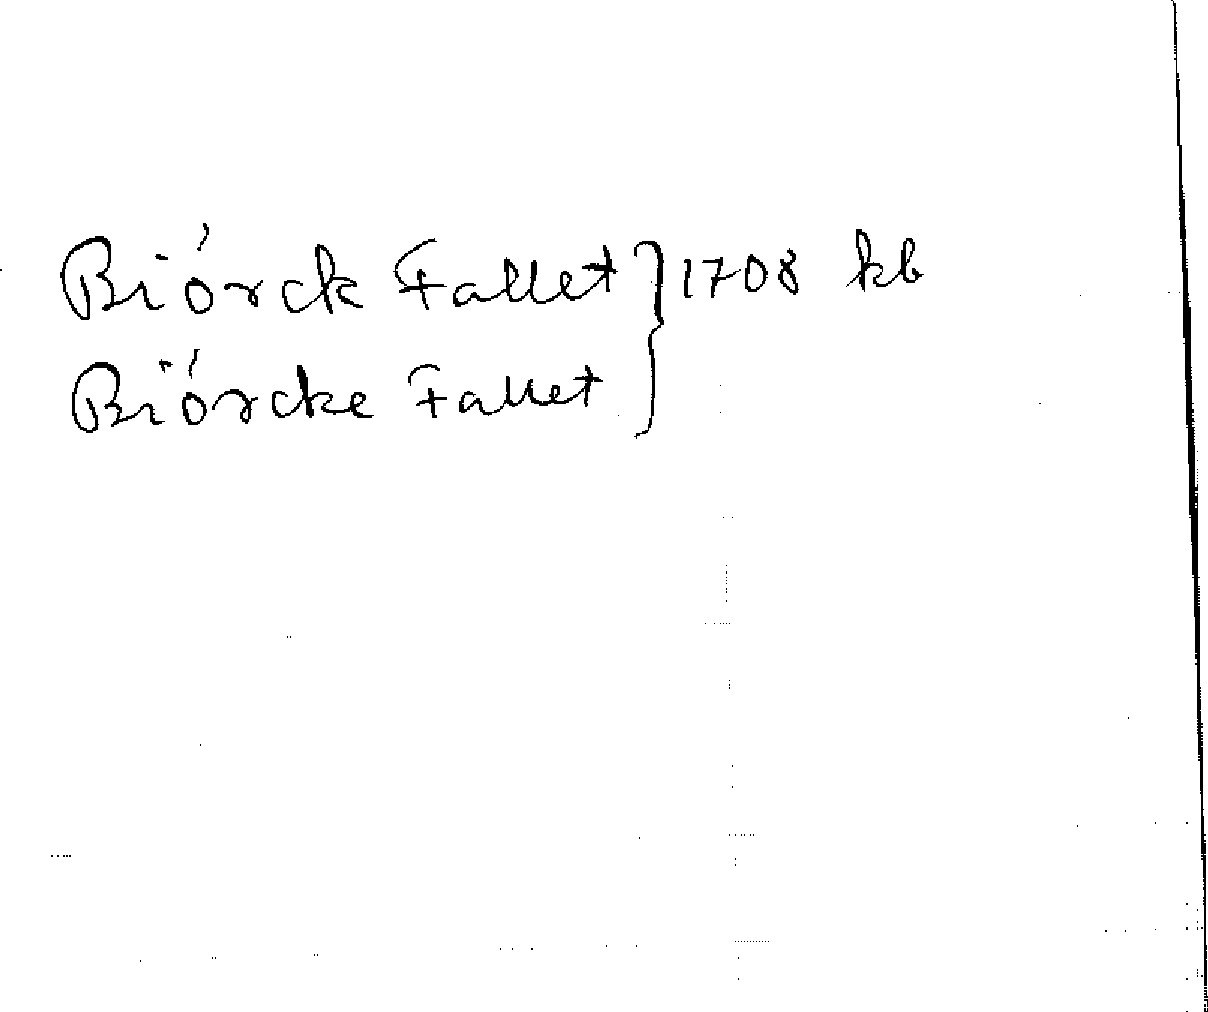 Biórck Fallet } 1708 kb
Biórcke Fallet